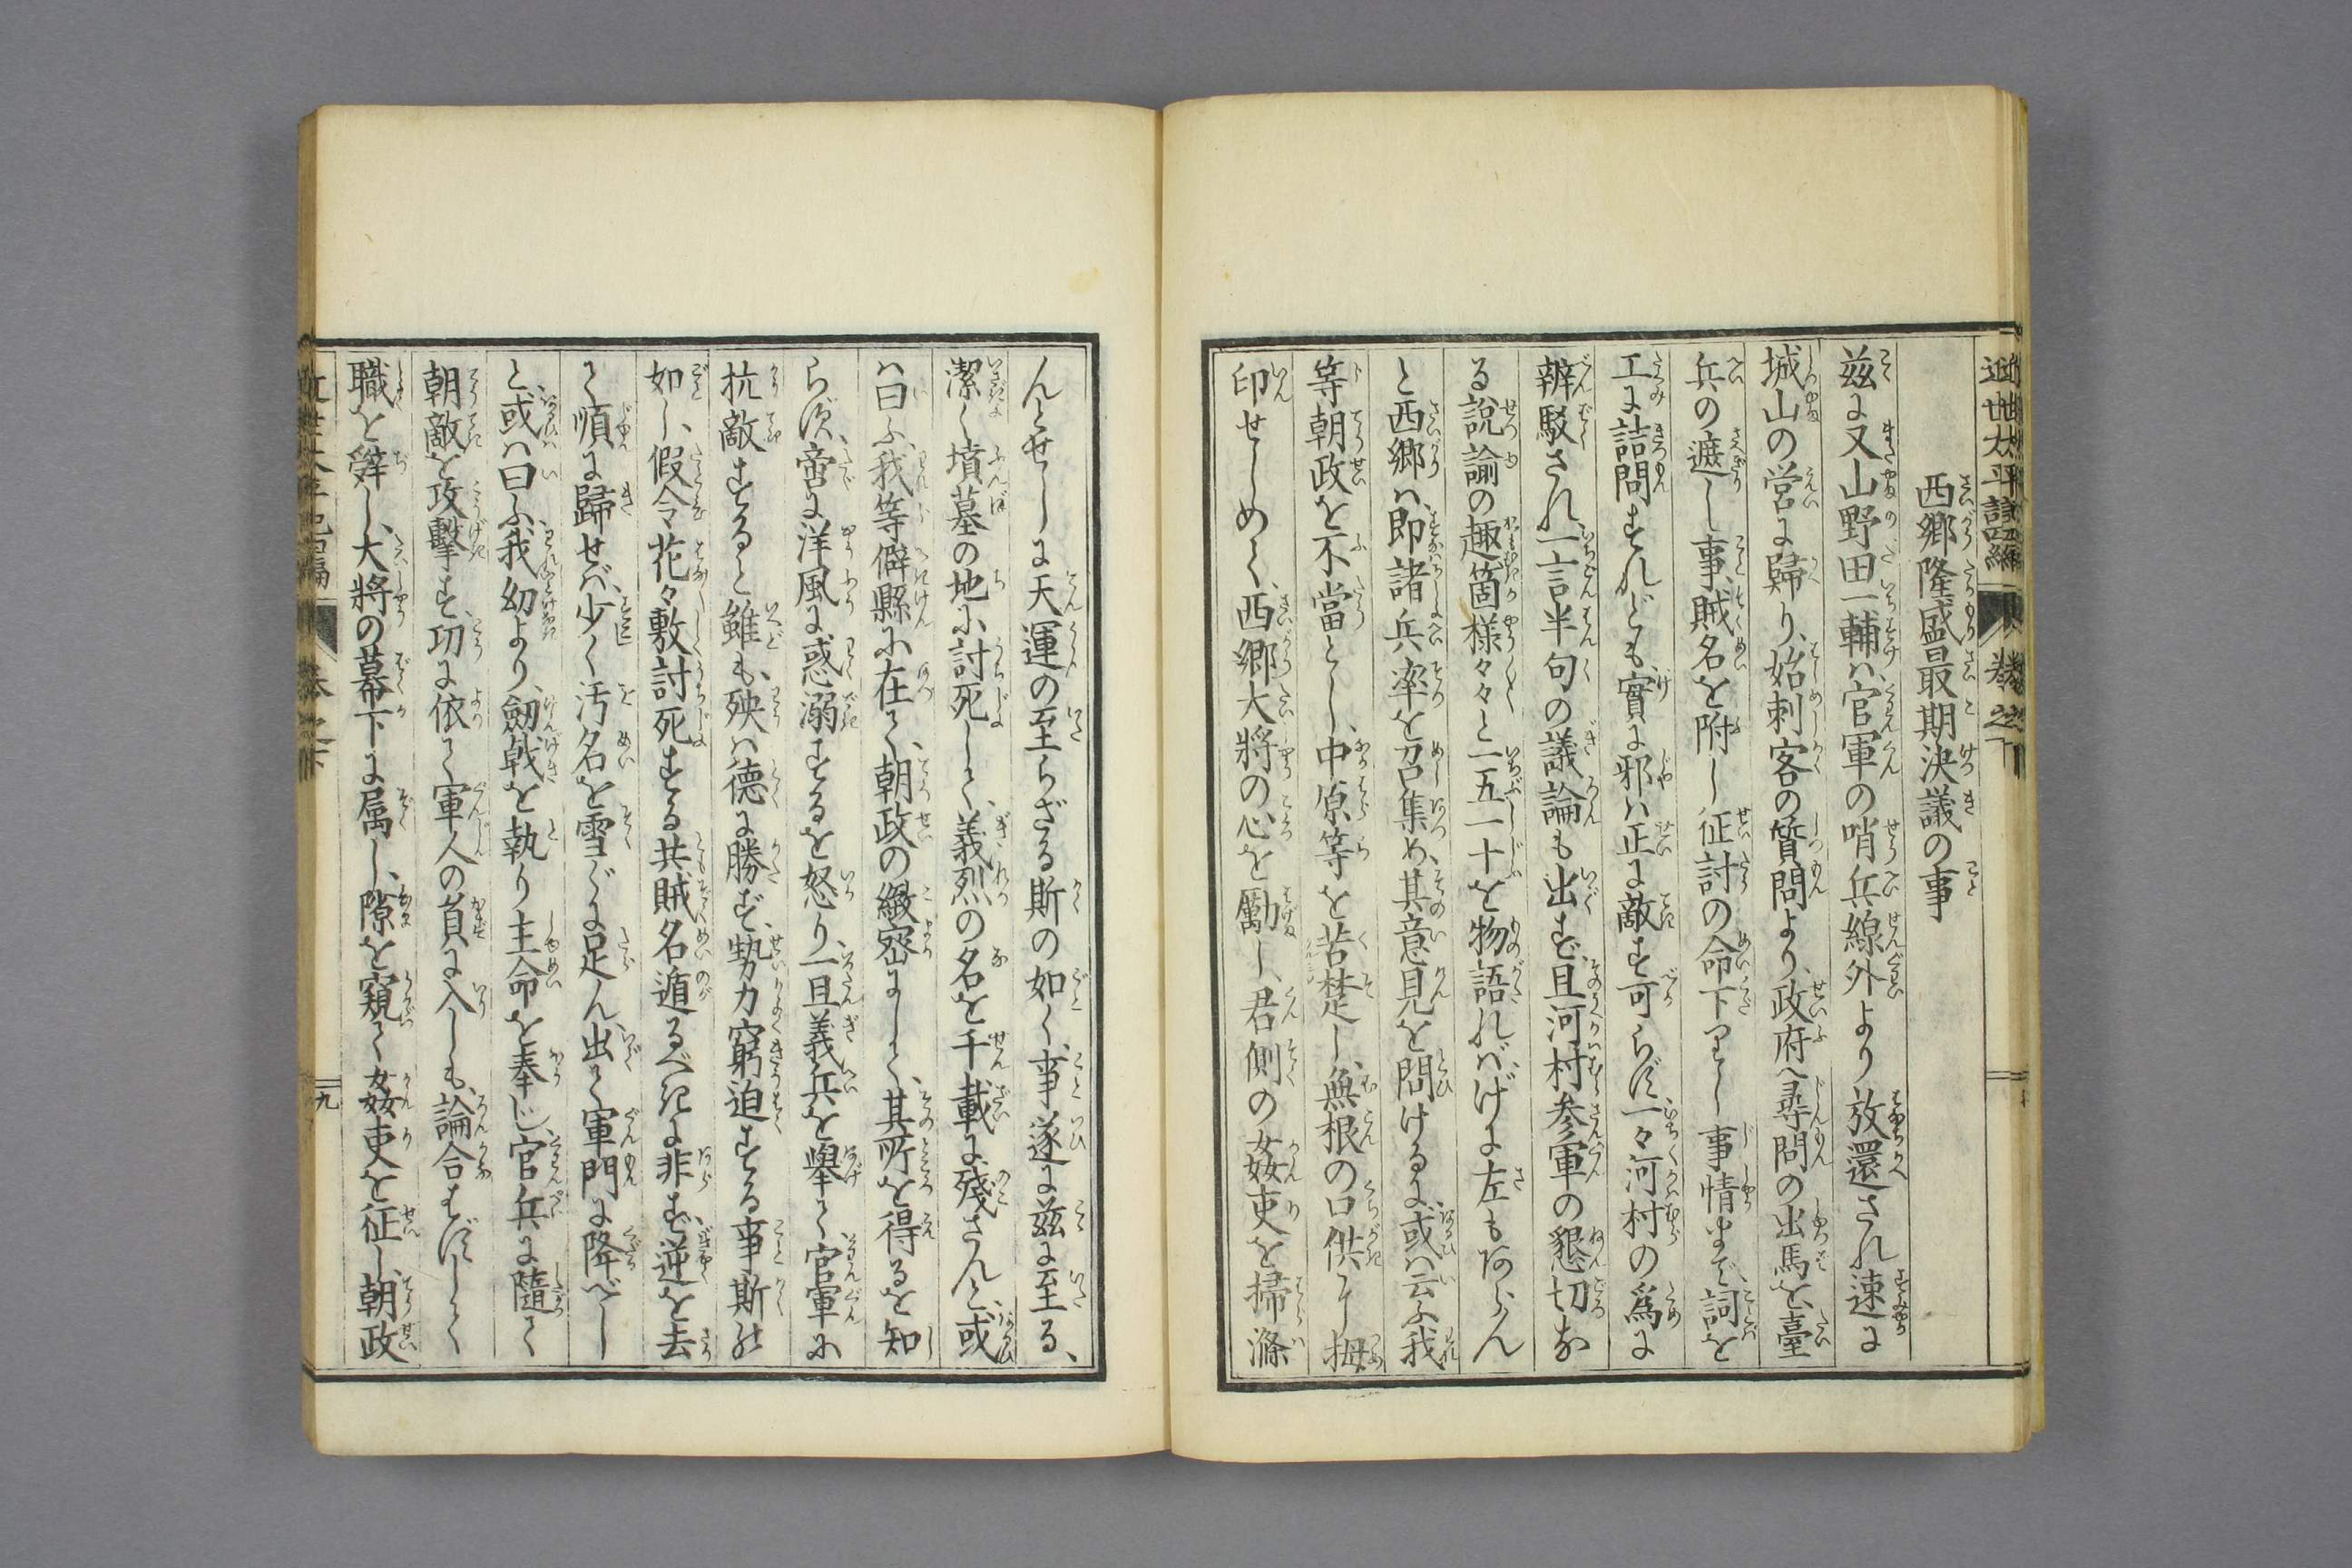 西郷隆盛最期決議の事
茲に又山野田一輔ハ官軍の哨兵線外より放還され速に
城山の営に歸り、始刺客の質問より、政府へ尋問の出馬を、臺
兵の遮し事、賊名を附し征討の命下りし事情まで、詞を
工に詰問すれども、實に邪ハ正に敵す可らず、一々河村の為に
辨駁され、一言半句の議論も出ず、且河村参軍の懇切な
る説諭の趣、箇様々々と一五一十を物語れバ、げに左もあらん
と西郷ハ、即諸兵率を召集め、其意見を問けるに、或ハ云ふ我
等朝政を不當とし、中原等を苦楚し、無根の口供に拇
印せしめて、西郷大将の心を勵し、君側の姦吏を掃滌
んとせしに天運の至らざる斯の如く、事遂に茲に至る、
潔く墳墓の地に討死して、義烈の名を千載に残さんと、或
ハ曰ふ、我等僻縣に在て、朝政の緻密にして、其所を得るを知
らず、啻に洋風に惑溺するを怒り、一旦義兵を擧て官軍に
抗敵すると雖も、殃ハ德に勝ず、勢力窮迫する事斯の
如し、假令花々敷討死する共賊名遁るべきに非ず、逆を去
て順に歸せバ、少く汚名を雪ぐに足ん、出て軍門に降べし
と、或ハ曰ふ、我幼より、劔戟を執り主命を奉じ、官兵に隨て
朝敵を攻擊す、功に依て軍人の員に入しも、論合はずして
職を辞し、大将の幕下に属し、隙を窺て姦吏を征し、朝政
近世太平記四編
巻之下
十九